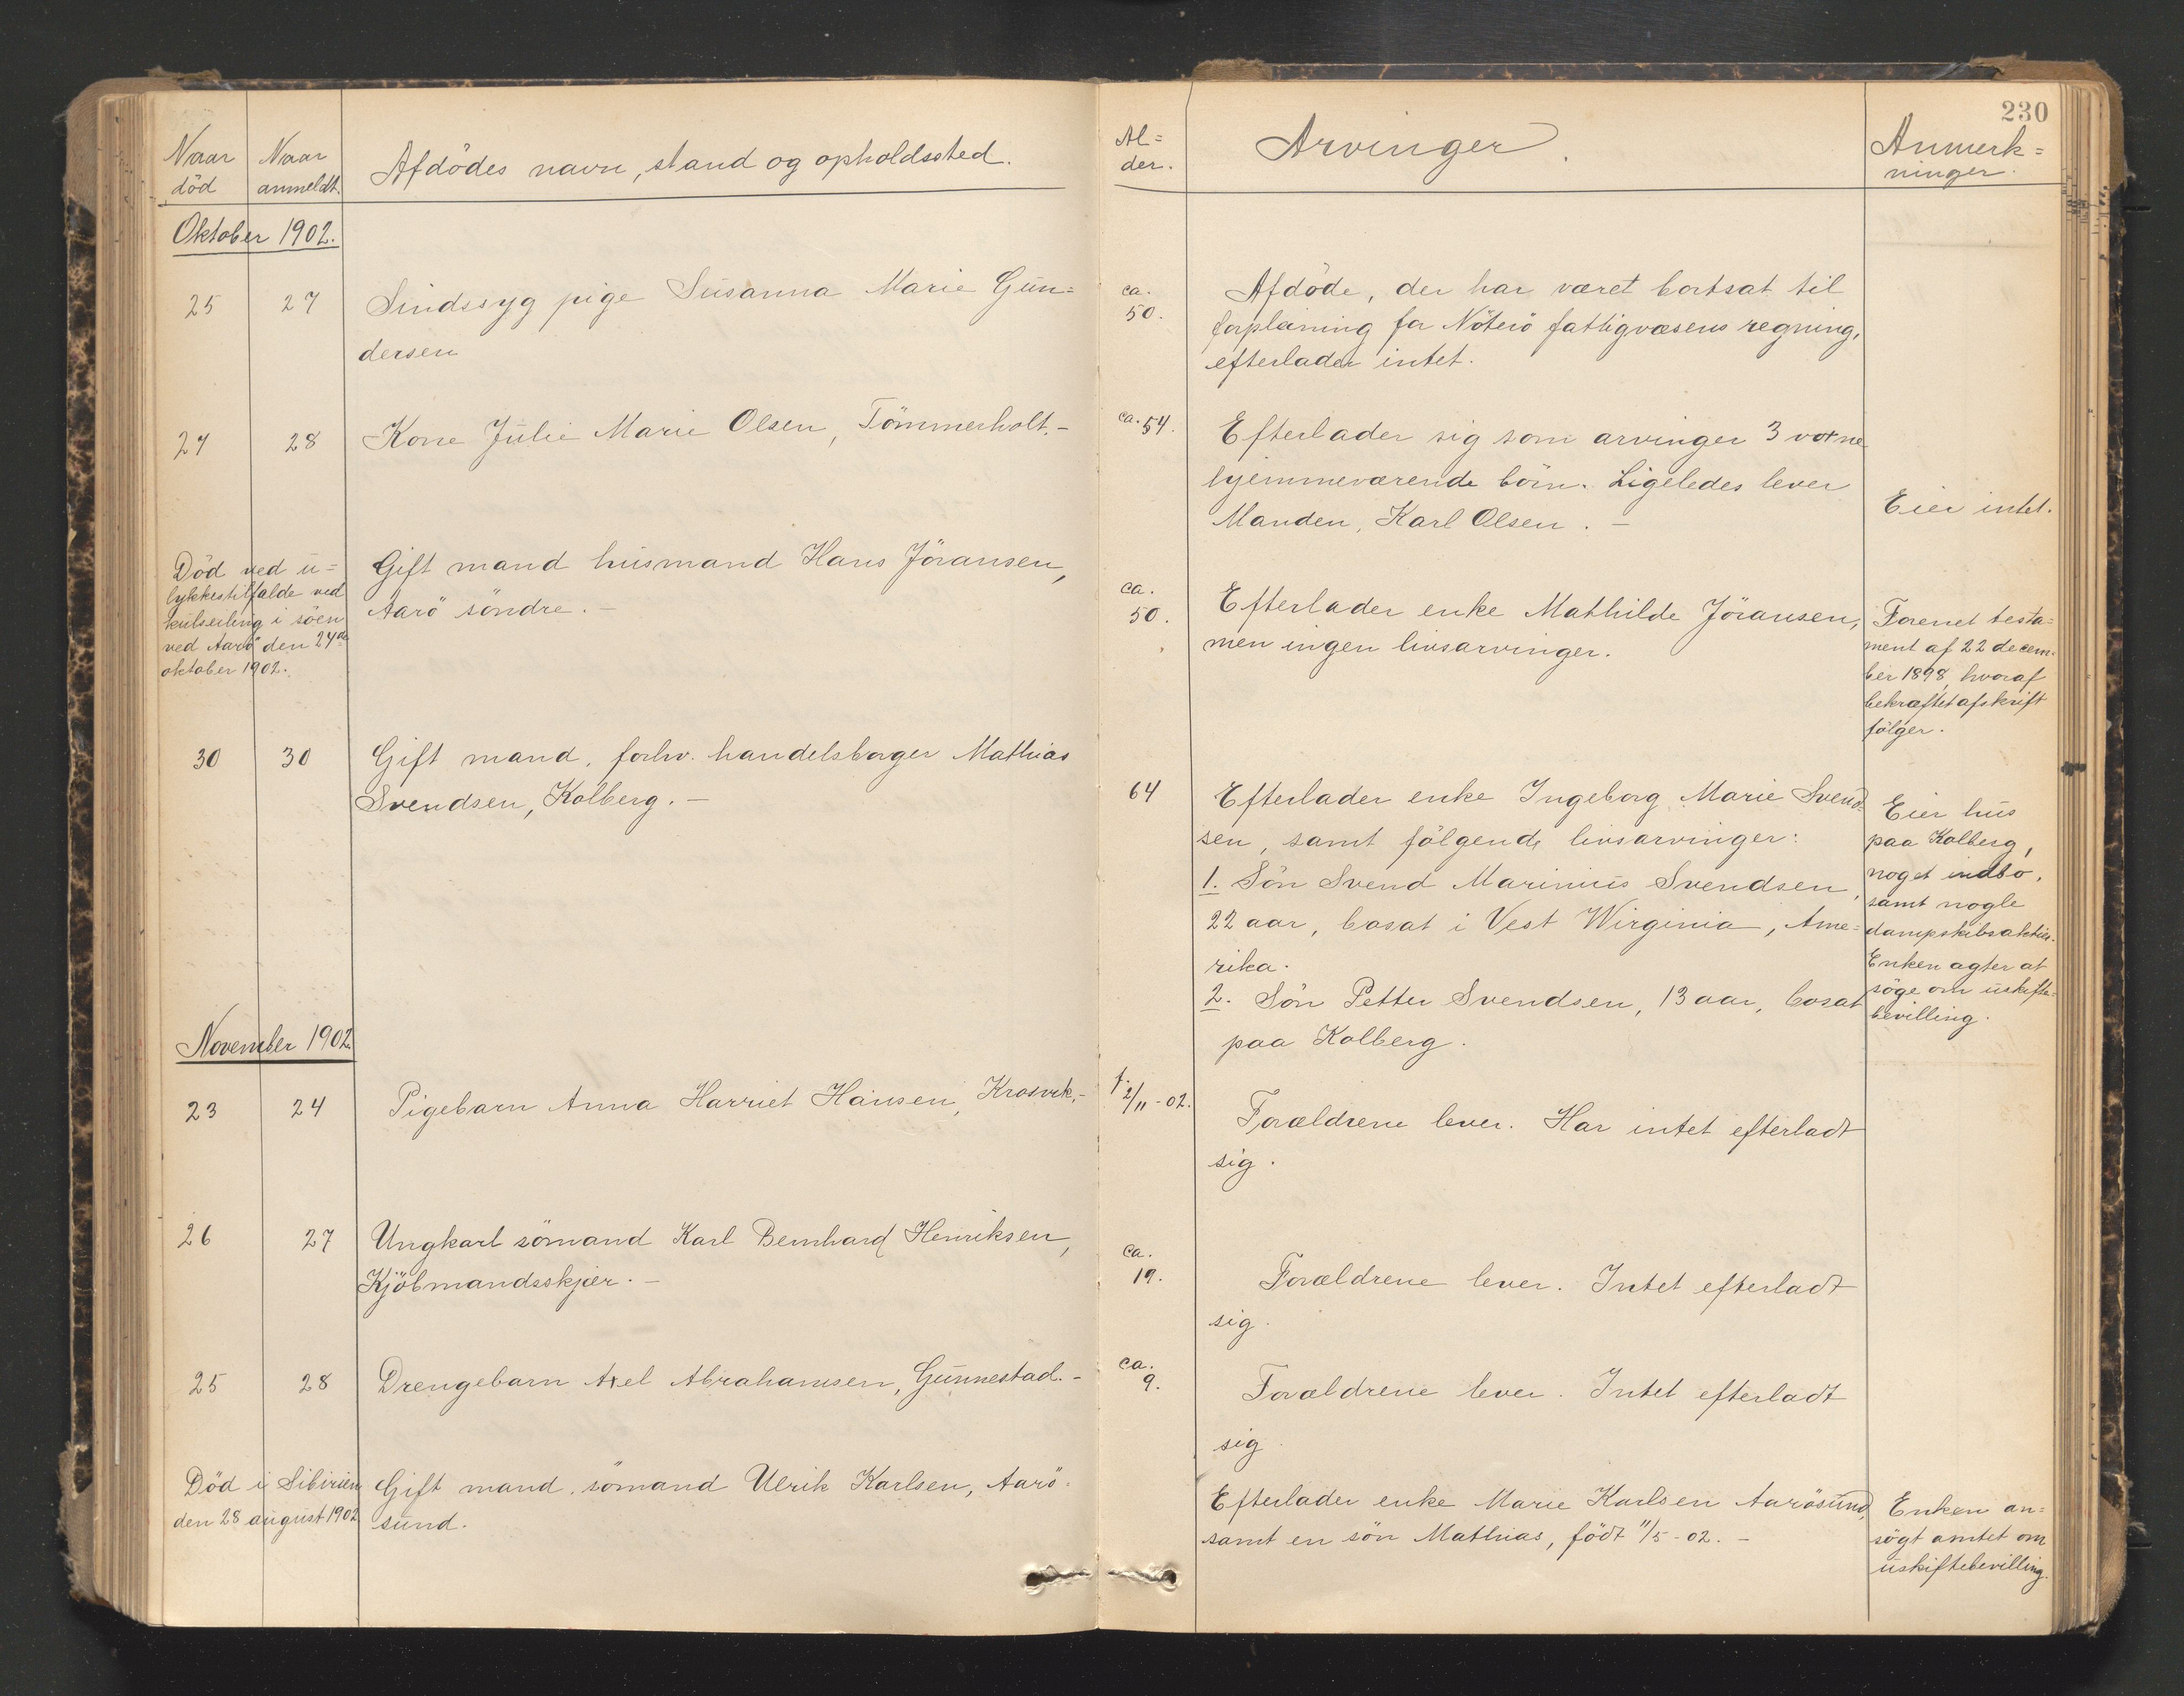 230
Naar død
Naar anmeldt.
Afdödes navn, stand og opholdssted.
Al=
der.
Arvinger.
Anmerk=
ninger.
Oktober 1902.
25 27 Sindssyg pige Susanna Marie Gun=
dersen
ca.
50.
Afdöde, der har været bortsat til
forpleining for Nöterö fattigvæsens regning,
efterlader intet.
27 28 Kone Julie Marie Olsen, Tömmerholt.-
ca. 54.
Efterlader sig som arvinger 3 voxne
hjemmeværende börn. Ligeledes lever
Manden, Karl Olsen. -
Eier intet.
Död ved u=
lykkestilfælde ved
kulseiling i söen
ved Aarö den 24de
oktober 1902.
Gift mand husmand Hans Jöransen,
Aarö söndre. -
ca.
50.
Efterlader enke Mathilde Jöransen,
men ingen livsarvinger.
Forenet testa=
ment af 22 decem-
ber 1898, hvoraf
bekræftet afskrift
fölger.
30 30 Gift mand, forhv. handelsborger Mathias
Svendsen, Kolberg. -
64
Efterlader enke Ingeborg Marie Svend=
sen, samt fölgende livsarvinger:
1. Sön Svend Marinius Svendsen,
22 aar, bosat i Vest Wirginia, Ame=
rika.
2. Sön Petter Svendsen, 13 aar, bosat
paa Kolberg.
Eier hus
paa Kolberg,
noget indbo,
samt nogle
dampskibsaktier.
Enken agter at
söge om uskifte=
bevilling.
November 1902.
23 24 Pigebarn Anna Harriet Hansen, Krosvik,-
f. 2/11-02.
Forældrene lever. Har intet efterladt
sig.
26 27 Ungkarl sömand Karl Bernhard Henriksen,
Kjöbmandsskjær. -
ca.
19.
Forældrene lever. Intet efterladt
sig.
25 28 Drengebarn Axel Abrahamsen, Gunnestad. -
ca.
9.
Forældrene lever. Intet efterladt
sig
Död i Sibirien
den 28 august 1902
Gift mand, sömand Ulrik Karlsen, Aarö=
sund.
Efterlader enke Marie Karlsen Aarösund,
samt en sön Mathias, födt 11/5-02. -
Enken an=
sögt amtet om
uskiftebevilling.